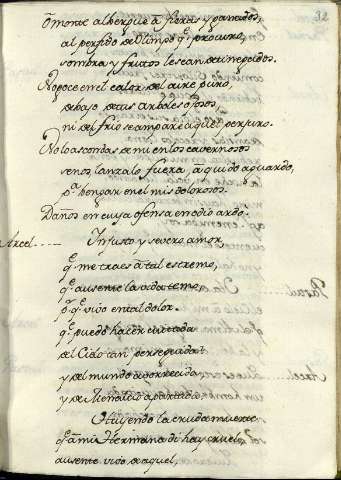 32
O monte albergue â fieras y ganados,
al perfido de Olimpo q̃. procuro,
sombra y frutos le sean denegados.
No goce en el calor del aire puro,
debajo de tus arboles ojosos,
ni del frio se ampare aquel perjuro.
No lo ascondas de mi en los cavernosos
senos, lanzalo fuera, â qui do aguardo,
p.ª bengar en el mis dolorosos.
Daños en cuya ofensa en odio ardo.
Arcel..... Injusto y severo amor
q.e me traes â tal estremo,
q.e ausente la vida temo,
p.r q.e vivo en tal dolor.
q.e puedo hacer cuitada
del Cielo tan perseguida
y del mundo aborrecida,
y de Menalcio apartada.
Huyendo la cruda muerte
q.e â mi Hermana di hay cruel,
ausente vivo de aquel,